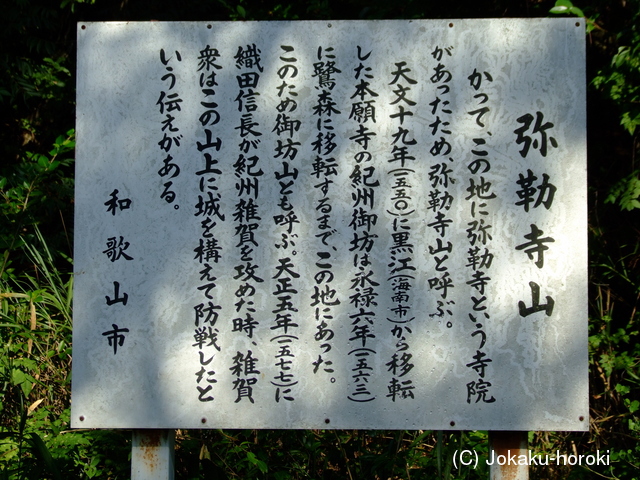 弥勒寺山
かって、この地に弥勒寺という寺院
があったため、弥勒寺山と呼ぶ。
天文十九年(一五五〇)に黒江(海南市)から移転
した本願寺の紀州御坊は永禄六年(一五六三)
に鷺森に移転するまで、この地にあった。
このため御坊山とも呼ぶ。天正五年(一五七七)に
織田信長が紀州雑賀を攻めた時、雑賀
衆はこの山上に城を構えて防戦したと
いう伝えがある。
和歌山市
(C) Jokaku-horoki